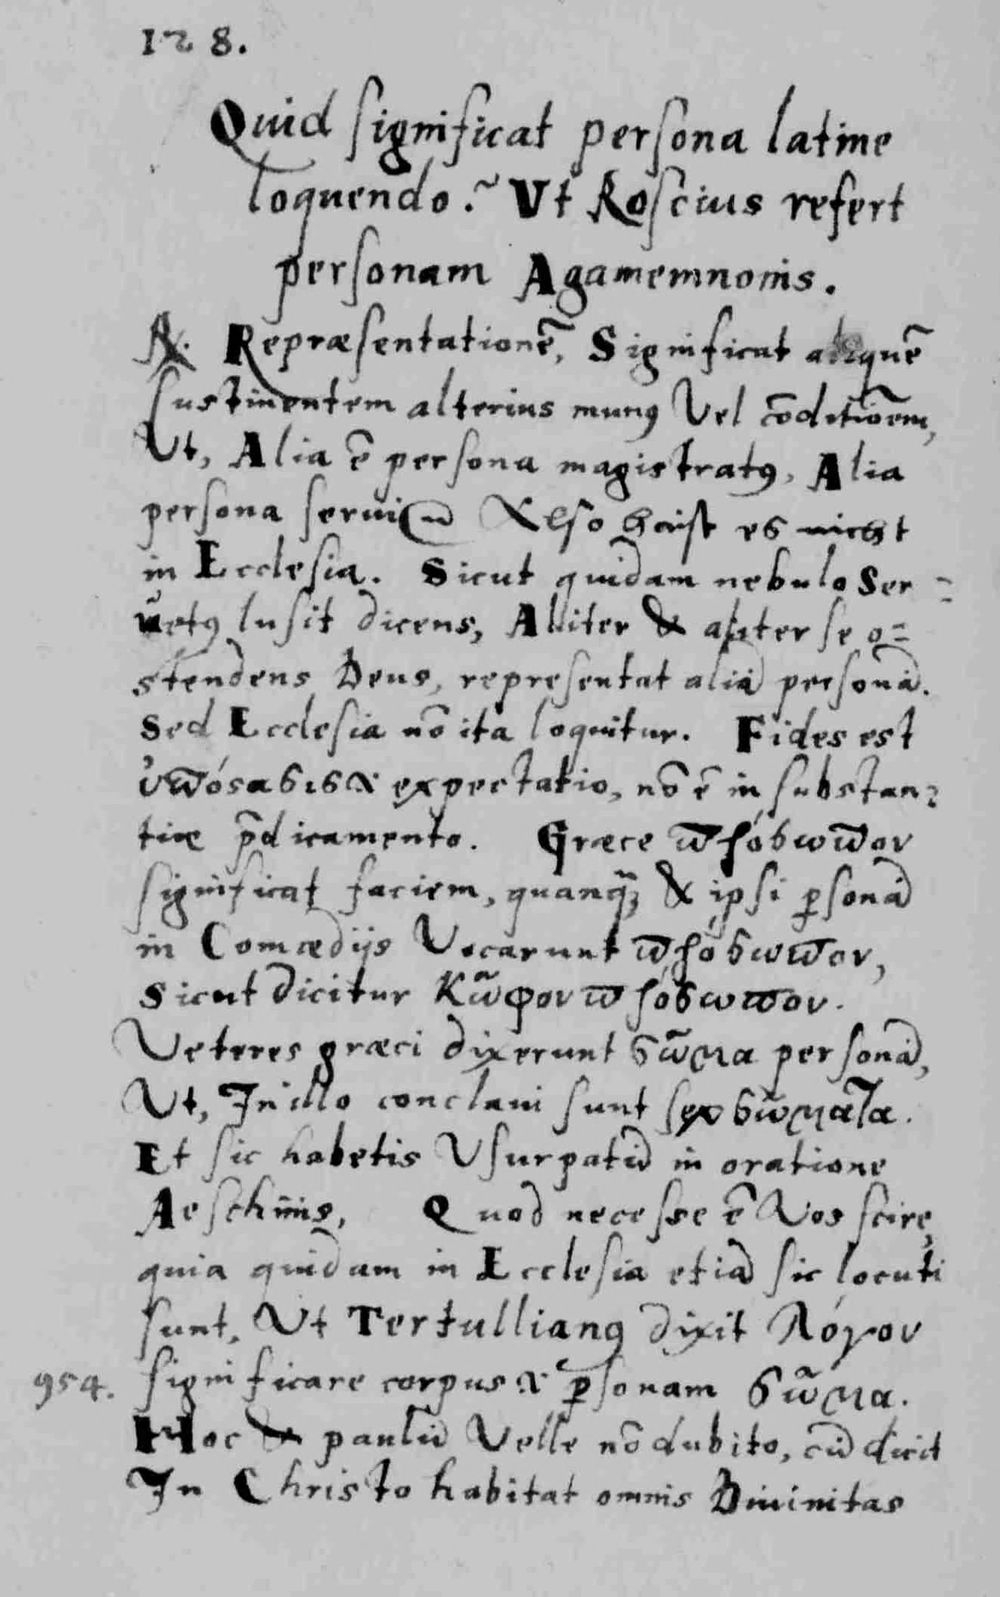 128.
Quid significat persona latine
loquendo? Vt Roscius refert
personam Agamemnonis.
R. Repræsentationē, Significat aliquē
sustinentem alterius munꝰ Vel cōditiōem,
Vt, Alia ē persona magistratꝰ, Alia
persona serui Also heist es nicht
in Ecclesia. Sicut quidam nebulo Ser=
uetꝰ lusit dicens, Aliter & aliter se o=
stendens Deus, representat aliā personā.
Sed Ecclesia nō ita loquitur. Fides est
ὑπόςασις & expectatio, nō ē in substan=
tiæ p̄dicamento. Græce πρόσωπον
significat faciem, quanqꝫ & ipsi ꝑsonā
in Comœdijs Vocarunt πρόσωπον,
Sicut dicitur Κῶφον πρόσωπον.
Veteres græci dixerunt σῶμα personā,
Vt, In illo conclaui sunt sex σώματα.
Et sic habetis Vsurpatū in oratione
Aeschinis, Quod necesse ē Vos scire,
quia quidam in Ecclesia etiā sic locuti
sunt, Vt Tertullianꝰ dixit Λόγον
954. significare corpus & ꝑsonam σῶμα.
Hoc & paulū Velle nō dubito, cū dicit
In Christo habitat omnis Diuinitas